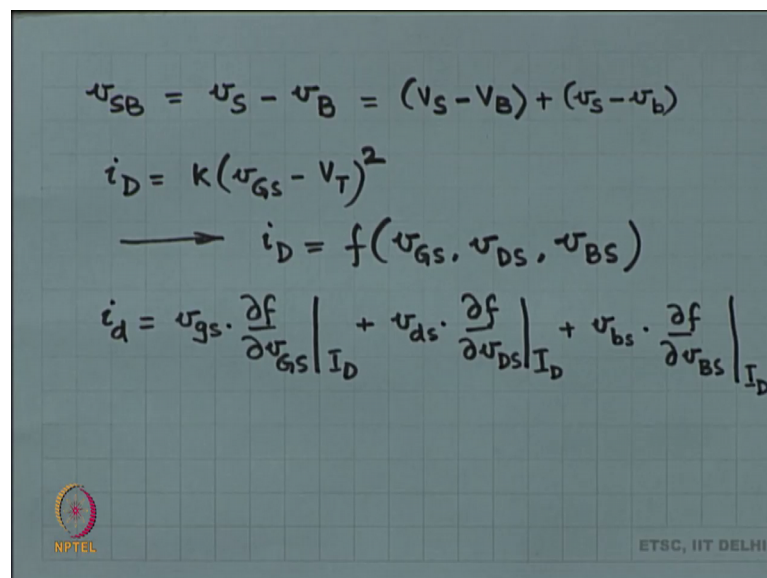 v_SB = v_S - v_B = (V_S - V_B) + (v_s - v_b)
i_D = K(v_GS - V_T)^2
⟶ i_D = f(v_GS, v_DS, v_BS)
i_d = v_gs · ∂f/∂v_GS |_I_D + v_ds · ∂f/∂v_DS |_I_D + v_bs · ∂f/∂v_BS |_I_D
NPTEL
ETSC, IIT DELHI